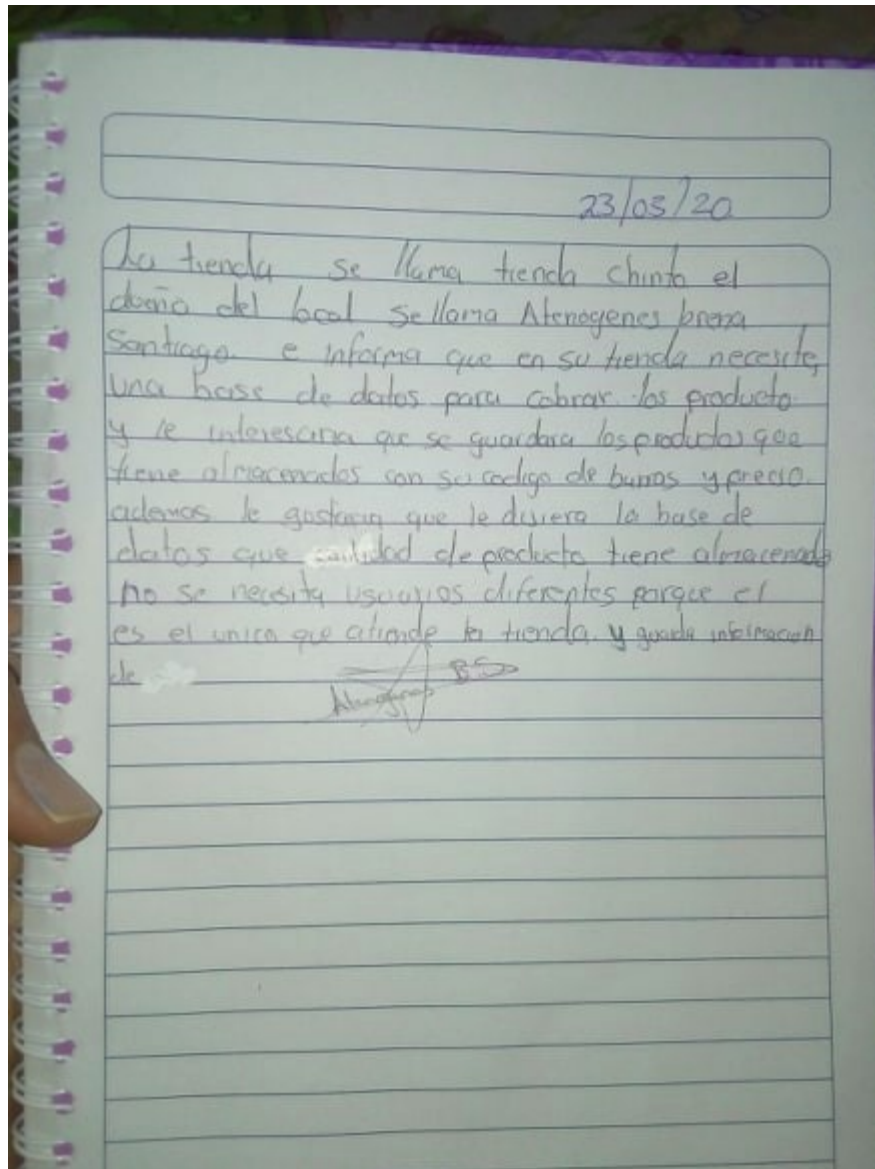 23/03/20
La tienda se llama tienda chinto el
dueño del local se llama Atenogenes brena
Santiago e informa que en su tienda necesite,
una base de datos para cobrar los producto
y le interesaria que se guardara los productos que
tiene almacenados con su codigo de barras y precio.
ademas le gustaria que le dijera la base de
datos que cantidad de producto tiene almacenado
no se necesita usuarios diferentes porque el
es el unico que atiende la tienda. y guarda información
de
Atenogenes BS